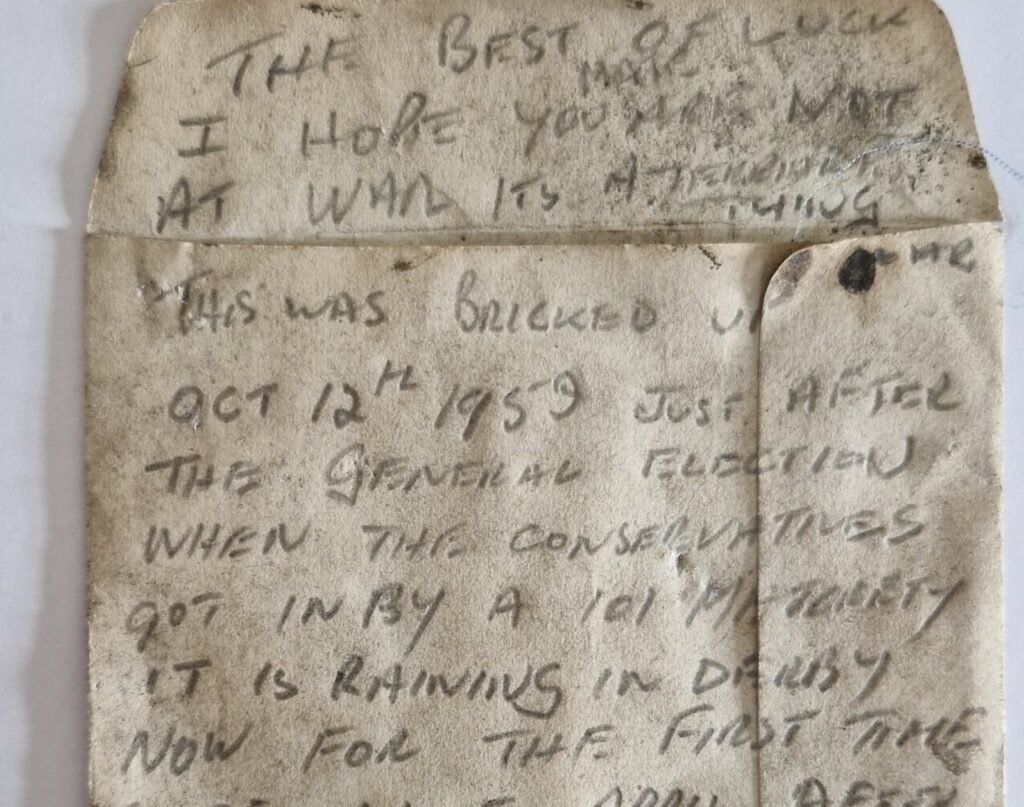 THE BEST OF LUCK
MATE
I HOPE YOU ARE NOT
AT WAR ITS A TERRIBLE
THING
WAR
THIS WAS BRICKED UP
OCT 12TH 1959 JUST AFTER
THE GENERAL ELECTION
WHEN THE CONSERVATIVES
GOT IN BY A 101 MAJORETY
IT IS RAINING IN DERBY
NOW FOR THE FIRST TIME
APRIL AFTER